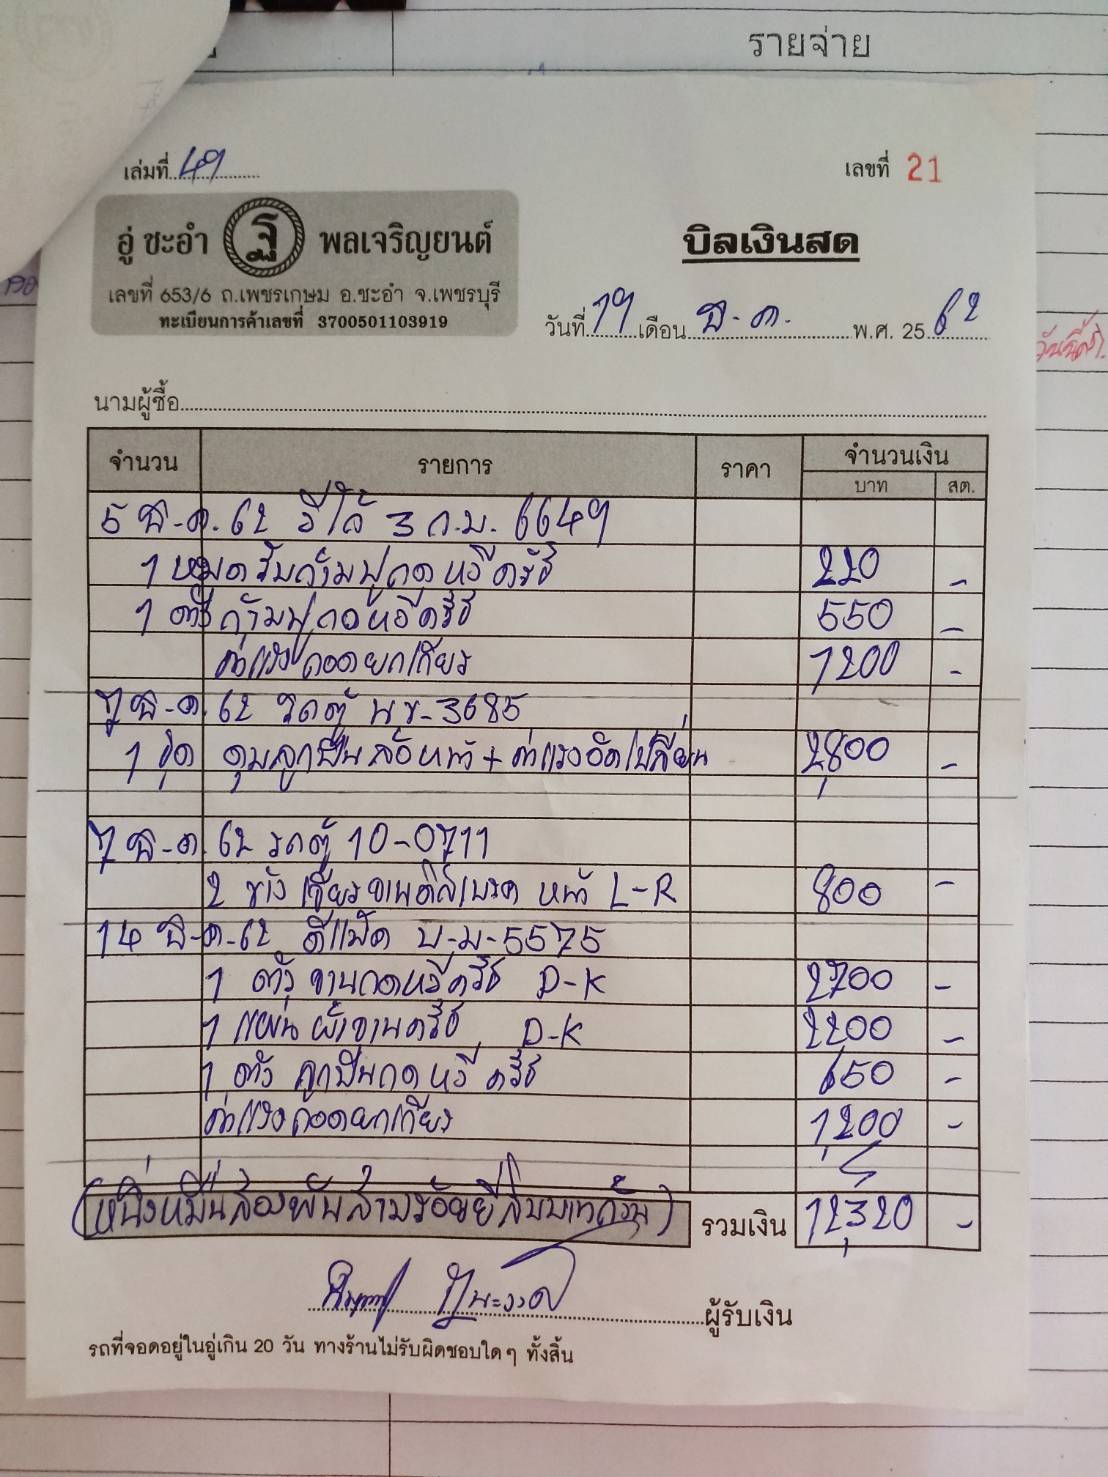 รายจ่าย
เล่มที่ 49
เลขที่ 21
อู่ ชะอำ ฐ พลเจริญยนต์
บิลเงินสด
เลขที่ 653/6 ถ.เพชรเกษม อ.ชะอำ จ.เพชรบุรี
ทะเบียนการค้าเลขที่ 3700501103919
วันที่ 19 เดือน ธ.ค. พ.ศ. 2562
นามผู้ซื้อ
จำนวน รายการ ราคา จำนวนเงิน
บาท สต.
5 ธ.ค. 62 3 ก.ม. 6649
1 กดหวีครัช 220 -
1 ตัว ก้ามปูกดหวีครัช 550 -
ค่าแรงถอดยกเกียร 1200 -
7 ธ.ค. 62 รถตู้ นข-3685
1 ชุด ดุมลูกปืนล้อหน้า + ค่าแรงอัดเปลี่ยน 2,800 -
7 ธ.ค. 62 รถตู้ 10-0711
2 ข้าง เจียรจานดิสเบรค หน้า L-R 800 -
14 ธ.ค.62 ดีแม็ค บ.ม-5575
1 ตัว จานกดหวีครัช D-K 2700 -
1 แผ่น ผ้าจานครัช D-K 2200 -
1 ตัว ลูกปืนกดหวี ครัช 650 -
ค่าแรงถอดยกเกียร 1,200 -
(หนึ่งหมื่นสองพันสามร้อยยี่สิบบาทถ้วน) รวมเงิน 12,320 -
ผู้รับเงิน
รถที่จอดอยู่ในอู่เกิน 20 วัน ทางร้านไม่รับผิดชอบใดๆ ทั้งสิ้น